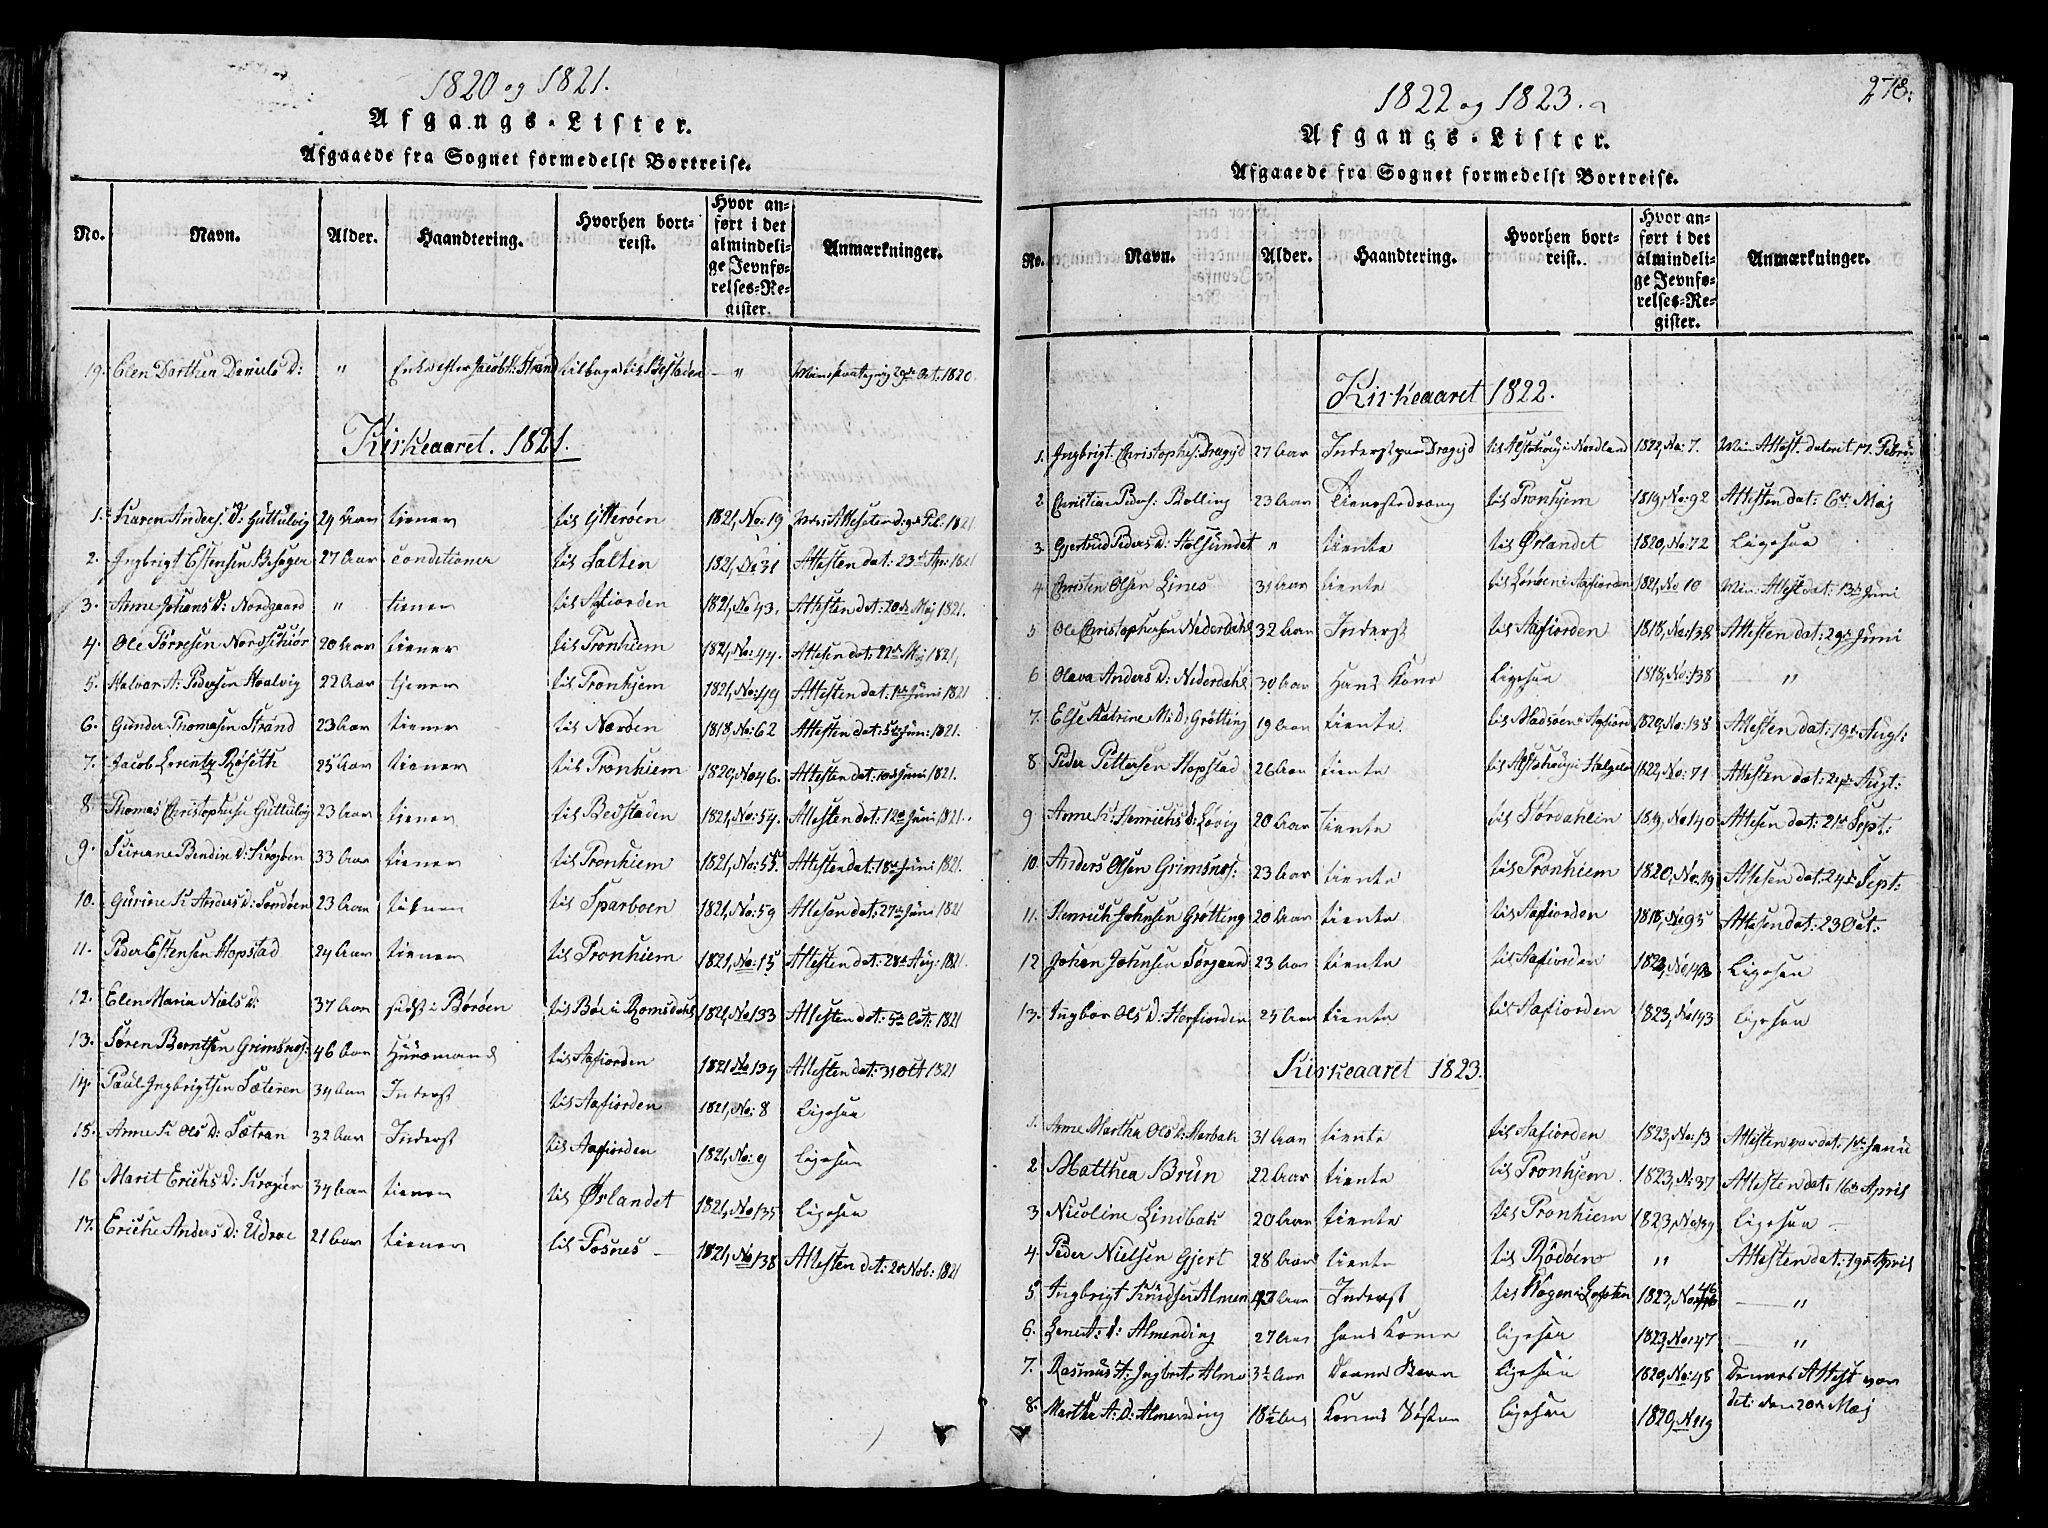 1820 og 1821.
Afgangs-Lister.
Afgaaede fra Sognet formedelst Bortreise.
No. Navn. Alder. Haandtering. Hvorhen bortreist. Hvor anført i det almindelige Jevnførelses-Register. Anmærkninger.
19. Elen Dorthea Daniels D: " Jacob Strand tilbage til Bystaden — " 29de Oct. 1820
Kirkeaaret. 1821.
1. Karen Anders. D: Huttulvig 24 Aar tiener til Ytterøen 1821, No: 19 Min Attest dat: Feb: 1821
2. Ingbrigt Estensen Besager 27 Aar conditioner til Salten 1821, No 31 Attesten dat: 23de Apr: 1821
3. Anne Johans D: Nordgaard " tiener til Aafiorden 1821, No 43. Attesten dat: 20de Maj 1821.
4. Ole Torresen Nordschiør 20 Aar tiener til Tronhiem 1821, No: 44. Attesten dat: 22de Maj 1821,
5. Halvar A: Pedersen Hoalvig 22 Aar tjener til Tronhjem 1821, No: 49 Attesten dat: 1ste Juni 1821
6. Gunder Thomasen Strand 23 Aar tiener til Nærøen 1818, No: 62 Attesten dat: 5te Juni 1821.
7. Jacob Lorentz Røseth 25 Aar tiener til Tronhiem 1820, No 46. Attesten dat: 10de Juni 1821.
8. Thomas Christophersen Huttulvig 23 Aar tiener til Bedstaden 1821, No: 54. Attesten dat: 12te Juni 1821.
9. Bendix D: 33 Aar tiener til Tronhiem 1821, No: 55. Attesten dat: 18de Juni 1821.
10. Gurine K Anders D: Sondøen 23 Aar tiener til Sparboen 1821, No: 59 Attesten dat: 27de Juni 1821
11. Peder Estensen Hopstad 24 Aar tiener til Tronhiem 1821, No: 15 Attesten dat: 28de Aug: 1821.
12. Elen Maria Niels D: 37 Aar sidst i Børøen til Bøe i Romsdahl 1821, No 133 Attesten dat: 5te Oct: 1821
13. Søren Berntsen Grimsnos: 46 Aar Huusmand til Aafiorden 1821 No 134 Attesten dat: 31 Oct 1821
14. Paul Ingbrigtsen Sæteren 34 Aar Inderst til Aafiorden 1821, No: 8 Ligesaa
15. Anne K Ols D: Sætran 32 Aar Inderst til Aafiorden 1821, No: 9 Ligesaa
16 Marit Erichs D: Krogøen 34 Aar tiener til Ørlandet 1821, No 135 Ligesaa
17. Ericha Anders D: Udroe 21 Aar tiener til Fosnes — 1821, No 138 Attesten dat: 2de Nob: 1821
278:
1822 og 1823.
Afgangs-Lister.
Afgaaede fra Sognet formedelst Bortreise.
No. Navn. Alder. Haandtering. Hvorhen bortreist. Hvor anført i det almindelige Jevnførelses-Register. Anmærkninger.
Kirkeaaret 1822.
1. Ingbrigt Christophes: Dragejd 27 Aar Inderst paa Dragejd til Alstahoug i Nordland 1822, No: 7. Min Attest. dateret 17. Febru
2 Christian Peders: Bolling 23 Aar Tienestedreng til Tronhjem 1819, No: 92 Attesten dat: 6te Maj
3. Gjertrud Peders D: Stolsundet " tiente til Ørlandet 1820, No: 72 Ligesaa
4. Christen Olsen Lines 31 Aar tiente til i Aafiorden 1821, No 10 Min Attest dat: 13de Juni
5 Ole Christophersen Nederdahl 32 Aar Inderst til Aafiorden 1818, No: 138 Attesten dat: 29de Juni
6 Olava Anders D: Nederdahl 30 Aar Hans Kone Ligesaa 1818, No: 138 — "
7. Else Katrine M: D: Grøtting 19 Aar tiente til Madsøen i Aafiord 1820, No: 138 Attesten dat: 19de Augs:
8 Peder Pettersen Hopstad 26 Aar tiente til Alstahoug i Helgela 1822, No: 71 Attesten dat: 21de Augt:
9 Anne K: Henrichs D: Løvig 20 Aar tiente til Størdahlen No 140 Attesten dat: 21de Sept:
10. Anders Olsen Grimsnos: 23 Aar tiente til Tronhiem 1820, No: 19 Attesten dat: 24de Sept:
11. Henrich Johnsen Grøtting 20 Aar tiente til Aafiorden 1818, No 95 Attesten dat: 23 Oct:
12 Johan Johnsen Sørgaard 23 Aar tiente til Aafiorden Ligesaa
13. Ingbor Ols D: Storfiorden 25 Aar tiente til Aafiorden 1823, No 143 Ligesaa
Kirkeaaret 1823.
1. Anne Martha Ols D: Harbak 31 Aar tiente til Aafiorden 1823, No: 13 Attesten var dat: 1ste Janu
2 Matthea Brun 22 Aar tiente til Tronhjem. 1823, No: 37 Attesten dat: 16de April
3 Nicoline Lindbak 20 Aar tiente til Tronhiem 1823, No: 39 Ligesaa —
4. Peder Nielsen Gjert 28 Aar tiente til Rødøen " Attesten dat: 19de April
5 Ingbrigt Knudsen Almen Aar Inderst til Wogen i Lofoten 1823, No 46 — "
6. Lene A: D: Almending 27 Aar hans Kone ligesaa 1823, No: 47 — "
7. Rasmus A: Ingbrt. Alme 3½ Aar Deres Barn ligesaa 1820, No: 48 Dennes Attest var
8. Martha A: D: Almending 18½ Aar Konens Søster ligesaa 1820, No 119 dat: den 20de Maj